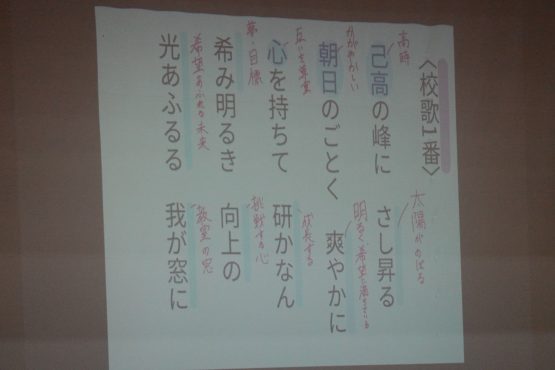 〈校歌1番〉
高時
太陽がのぼる
己高の峰に さし昇る
かがやかしい
明るく希望に満ちている
朝日のごとく 爽やかに
互いを尊重
成長する
心を持ちて 研かなん
目標
挑戦する心
希み明るき 向上の
希望あふれる未来
教室の窓
光あふるる 我が窓に